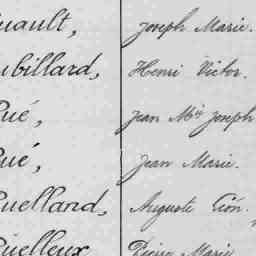 uault, Joseph Marie.
ubillard, Henri Victor.
ué, Jean Mie Joseph
ué, Jean Marie.
uelland, Auguste Léon.
uelleux Pierre Marie